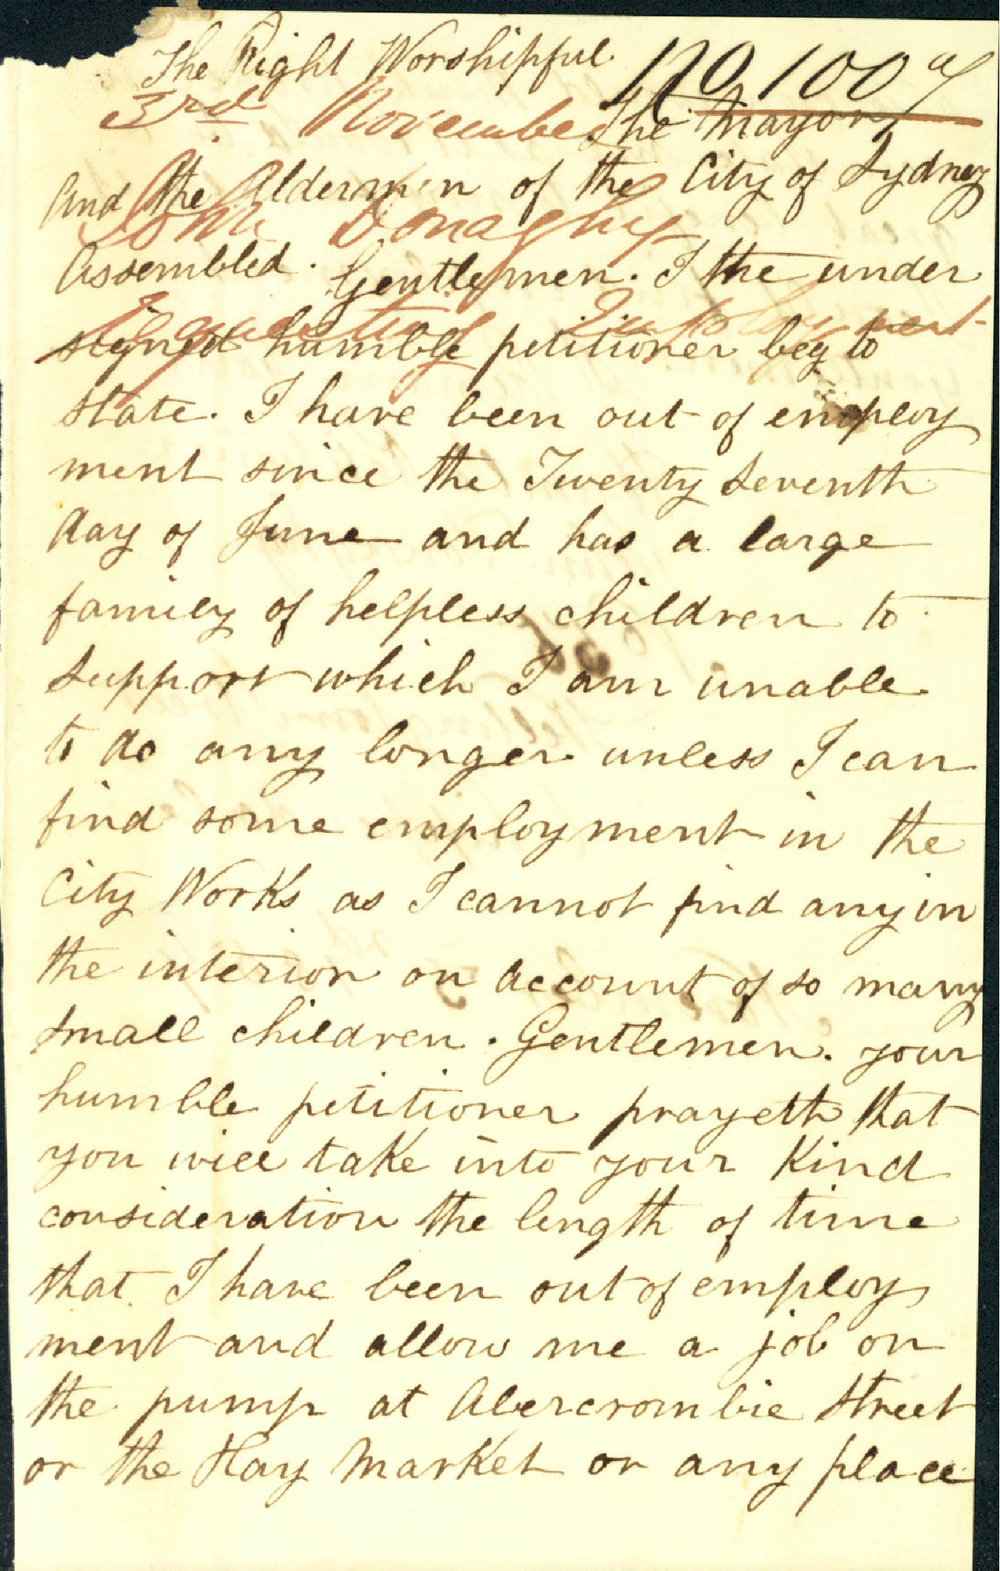 The Right Worshipful
No 1007
3rd November
The Mayor
And the Aldermen of the City of Sydney
John Donaghy
Assembled. Gentlemen. I the under
Requesting Employment
signed humble petitioner beg to
state. I have been out of employ
ment since the Twenty Seventh
day of June and has a large
family of helpless children to
support which I am unable
to do any longer unless I can
find some employment in the
City Works as I cannot find any in
the interior on account of so many
small children. Gentlemen. your
humble petitioner prayeth that
you will take into your Kind
consideration the length of time
that I have been out of employ
ment and allow me a job on
the pump at Abercrombie Street
or the Hay Market or any place